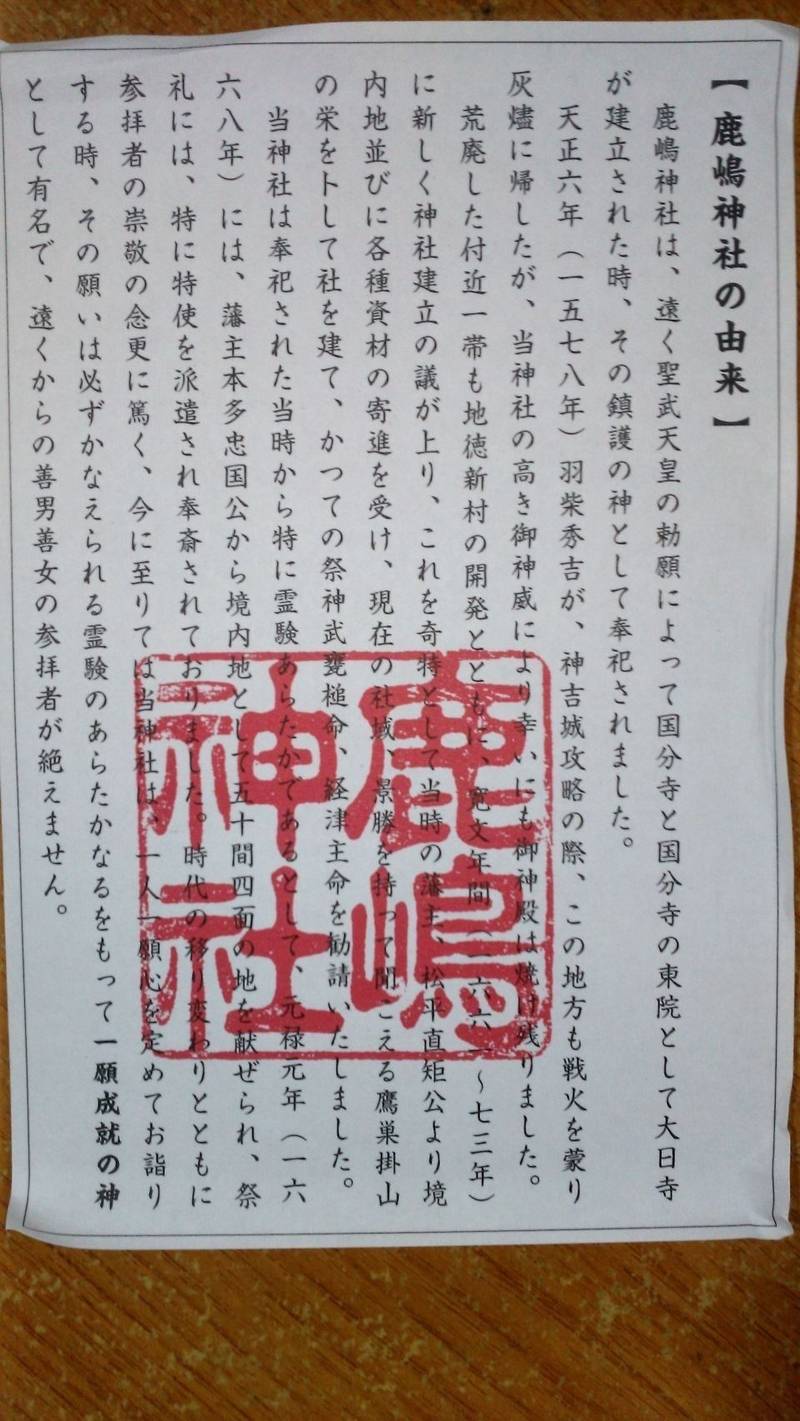 【鹿嶋神社の由来】
鹿嶋神社は、遠く聖武天皇の勅願によって国分寺と国分寺の東院として大日寺
が建立された時、その鎮護の神として奉祀されました。
天正六年（一五七八年）羽柴秀吉が、神吉城攻略の際、この地方も戦火を蒙り
灰燼に帰したが、当神社の高き御神威により幸いにも御神殿は焼け残りました。
荒廃した付近一帯も地徳新村の開発とともに、寛文年間（一六六一～七三年）
に新しく神社建立の議が上り、これを奇特として当時の藩主、松平直矩公より境
内地並びに各種資材の寄進を受け、現在の社域、景勝を持って聞こえる鷹巣掛山
の栄をトして社を建て、かつての祭神武甕槌命、経津主命を勧請いたしました。
当神社は奉祀された当時から特に霊験あらたかであるとして、元禄元年（一六
六八年）には、藩主本多忠国公から境内地として五十間四面の地を献ぜられ、祭
礼には、特に特使を派遣され奉斎されておりました。時代の移り変わりとともに
参拝者の崇敬の念更に篤く、今に至りては当神社は、一人一願心を定めてお詣り
する時、その願いは必ずかなえられる霊験のあらたかなるをもって一願成就の神
として有名で、遠くからの善男善女の参拝者が絶えません。
鹿嶋
神社